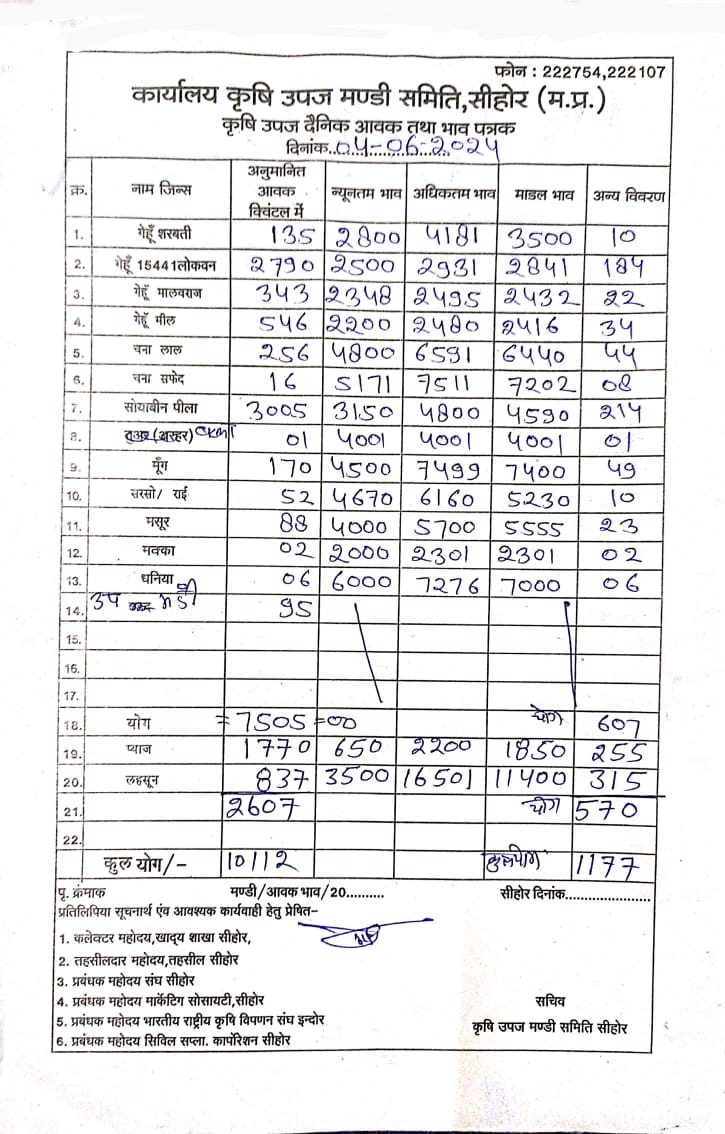 फोन : 222754,222107
कार्यालय कृषि उपज मण्डी समिति,सीहोर (म.प्र.)
कृषि उपज दैनिक आवक तथा भाव पत्रक
दिनांक..04-06-2024
क्र. नाम जिन्स अनुमानित आवक विवंटल में न्यूनतम भाव अधिकतम भाव माडल भाव अन्य विवरण
1. गेहूँ शरबती 135 2800 4181 3500 10
2. गेहूँ 15441लोकवन 2790 2500 2931 2841 184
3. गेहूँ मालवराज 343 2348 2495 2432 22
4. गेहूँ मील 546 2200 2480 2416 34
5. चना लाल 256 4800 6591 6440 44
6. चना सफेद 16 5171 7511 7202 08
7. सोयाबीन पीला 3005 3150 4800 4590 214
8. तुअर (अरहर) 01 4001 4001 4001 01
9. मूँग 170 4500 7499 7400 49
10. सरसो/ राई 52 4670 6160 5230 10
11. मसूर 88 4000 5700 5555 23
12. मक्का 02 2000 2301 2301 02
13. धनिया 06 6000 7276 7000 06
14. उप मंडी 95
15.
16.
17.
18. योग = 7505=00 योग 607
19. प्याज 1770 650 2200 1850 255
20. लहसून 837 3500 16501 11400 315
21. 2607 योग 570
22.
कुल योग/- 10112 कुलयोग 1177
पृ. क्रंमाक मण्डी/आवक भाव/20.......... सीहोर दिनांक........................
प्रतिलिपिया सूचनार्थ एंव आवश्यक कार्यवाही हेतु प्रेषित–
1. कलेक्टर महोदय,खाद्य शाखा सीहोर,
2. तहसीलदार महोदय,तहसील सीहोर
3. प्रबंधक महोदय संघ सीहोर
4. प्रबंधक महोदय मार्केटिग सोसायटी,सीहोर सचिव
5. प्रबंधक महोदय भारतीय राष्ट्रीय कृषि विपणन संघ इन्दोर कृषि उपज मण्डी समिति सीहोर
6. प्रबंधक महोदय सिविल सप्ला. कार्पोरेशन सीहोर